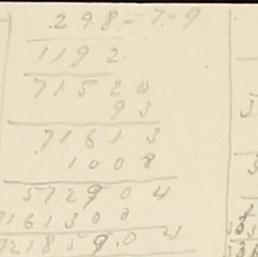 298 = 7 - 9
1192
71520
93
71613
1008
572904
7161300
72185904